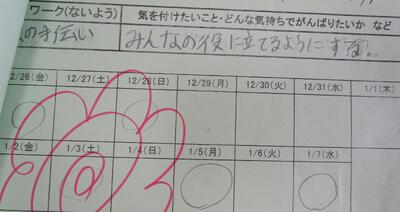 ワーク(ないよう) 気を付けたいこと・どんな気持ちでがんばりたいか など
の手伝い みんなの役に立てるようにする。
12/26(金) 12/27(土) 12/28(日) 12/29(月) 12/30(火) 12/31(水) 1/1(木)
1/2(金) 1/3(土) 1/4(日) 1/5(月) 1/6(火) 1/7(水)